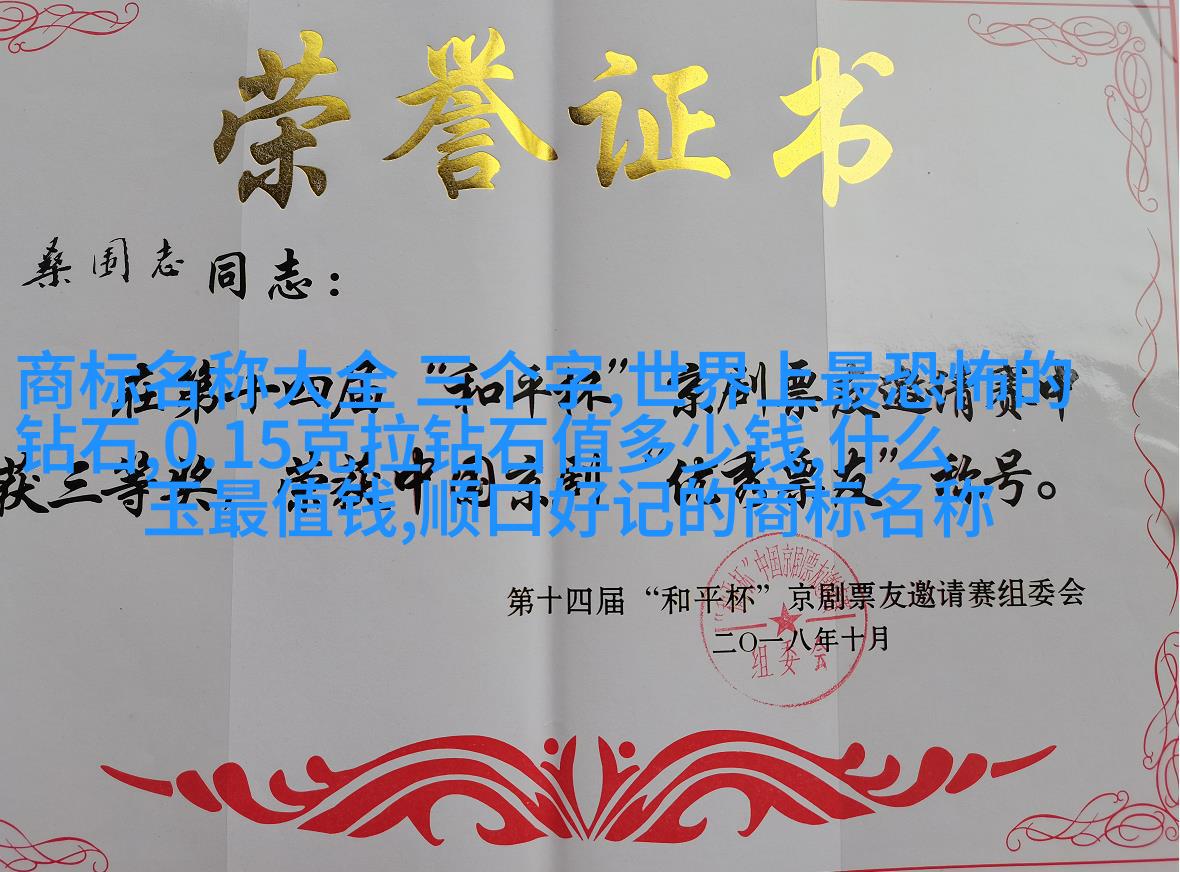 荣誉证书
桑围志 同志：
商标名称大全 三个字,世界上最恐怖的
在第十四届“和平杯”京剧票友邀请赛中
钻石,0.15克拉钻石值多少钱,什么
获三等奖，荣获中国京剧“优秀票友”称号。
玉最值钱,顺口好记的商标名称
第十四届“和平杯”京剧票友邀请赛组委会
二〇一八年十月
组委会